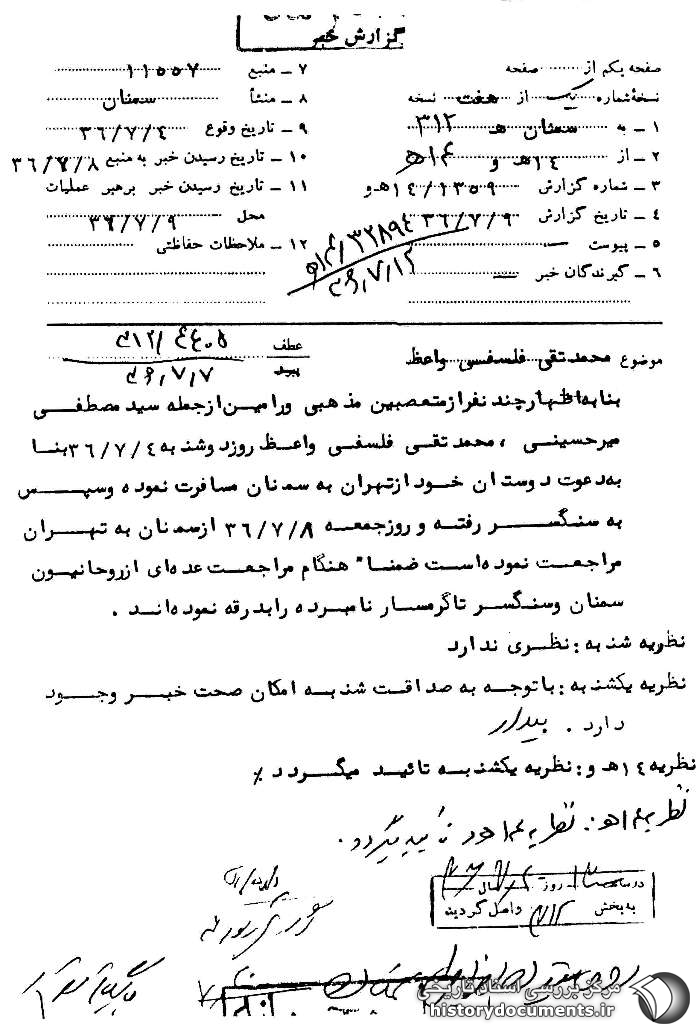 گزارش خبر
صفحه یکم از صفحه
نسخهٔ شماره یک از هفت نسخه
۱ ـ به سمنان هـ ۳۱۲
۲ ـ از ۱۴هـ و
۳ ـ شماره گزارش ۱۴/۱۳۵۹هـ و
۴ ـ تاریخ گزارش ۳۶/۷/۹
۵ ـ پیوست ــ
۶ ـ گیرندگان خبر ــ
۷ ـ منبع ۱۱۵۵۷
۸ ـ منشأ سمنان
۹ ـ تاریخ وقوع ۳۶/۷/۴
۱۰ ـ تاریخ رسیدن خبر به منبع ۳۶/۷/۸
۱۱ ـ تاریخ رسیدن خبر برهبر عملیات
محل ۳۶/۷/۹
۱۲ ـ ملاحظات حفاظتی
۳۲۸۹۴
۳۶/۷/۱۲
موضوع محمد تقی فلسفی واعظ
عطف
پیرو
۳۱۲/۴۴۰۵
۳۶/۷/۷
بنا به اظهار چند نفر از متعصبین مذهبی ورامین از جمله سید مصطفی
میرحسینی ، محمد تقی فلسفی واعظ روز دوشنبه ۳۶/۷/۴ بنا
به دعوت دوستان خود از تهران به سمنان مسافرت نموده وسپس
به سنگسر رفته و روز جمعه ۳۶/۷/۸ از سمنان به تهران
مراجعت نموده است ضمنا" هنگام مراجعت عده ای از روحانیون
سمنان وسنگسر تا گرمسار نامبرده را بدرقه نموده اند .
نظریه شنبه : نظری ندارد
نظریه یکشنبه : با توجه به صداقت شنبه امکان صحت خبر وجود
دارد . بیدار
نظریه ۱۴ هـ و : نظریه یکشنبه تائید میگردد ٪
نظریه : نظریه تأیید میگردد .
در ساعت روز سال
به بخش ۳۱۲ واصل گردید
مرکز بررسی اسناد تاریخی
historydocuments.ir